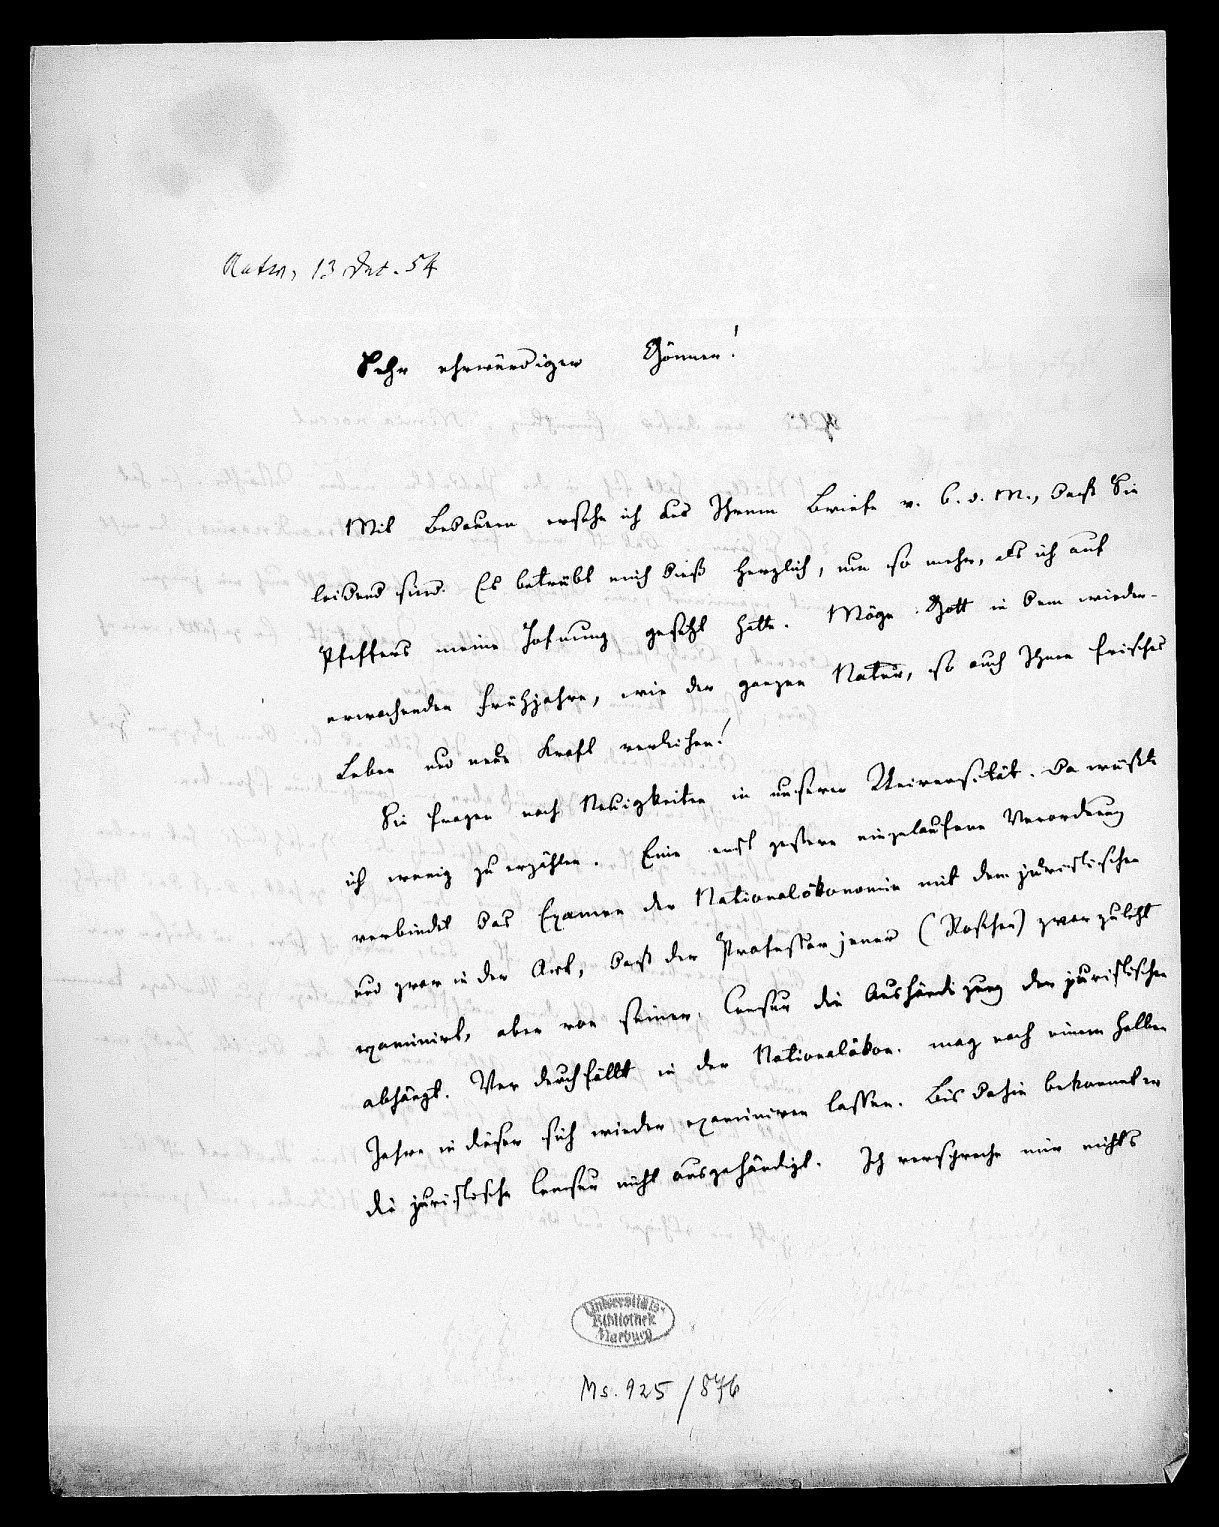 13 Dec. 54
Sehr ehrwürdiger Gönner!
Mit Bedauern ersehe ich aus Ihrem Briefe v. 6. d. M., daß Sie
leidend sind. Es betrübt mich dieß herzlich, um so mehr, als ich auf
Pfeffers meine Hofnung gesetzt hatte. Möge Gott in dem wieder-
erwachenden Frühjahre, wie der ganzen Natur, so auch Ihnen frisches
Leben und neue Kraft verleihen!
Sie fragen nach Neuigkeiten in unserer Universität. Da wüßte
ich wenig zu erzählen. Eine erst gestern eingelaufene Verordnung
verbindet das Examen der Nationalökonomie mit dem juristischen
und zwar in der Art, daß der Professor jener (Roscher) zwar zuletzt
examinirt, aber von seiner Censur die Aushändigung der juristischen
abhängt. Wer durchfällt in der Nationalökon. mag nach einem halben
Jahre in dieser sich wieder examiniren lassen. Bis dahin bekommt er
die juristische Censur nicht ausgehändigt. Ich verspreche mir nichts
Universitäts-
Bibliothek
Marburg
Ms. 925/876